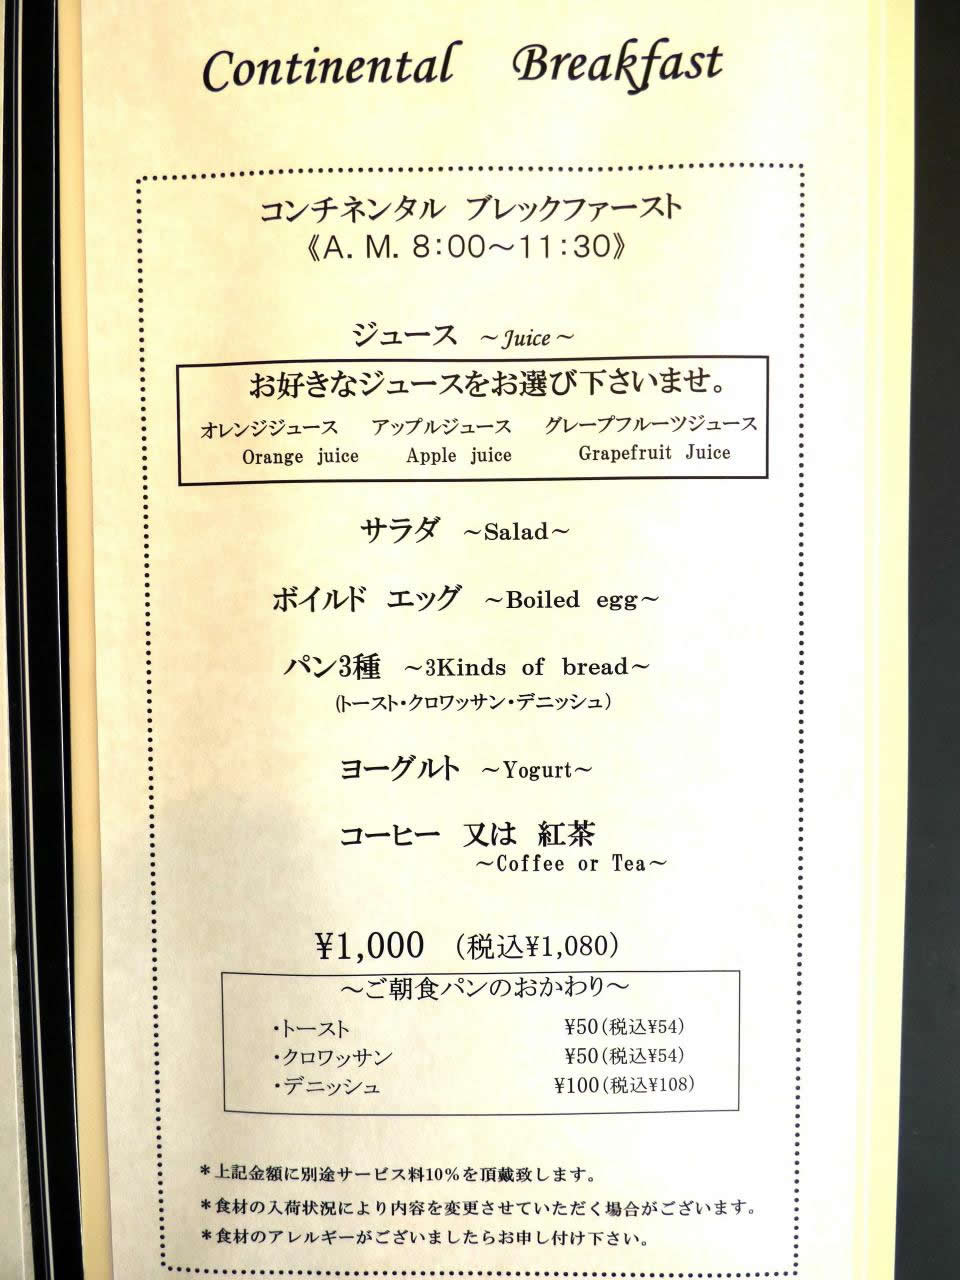 Continental Breakfast
コンチネンタル ブレックファースト
《A. M. 8:00～11:30》
ジュース ～Juice～
お好きなジュースをお選び下さいませ。
オレンジジュース アップルジュース グレープフルーツジュース
Orange juice Apple juice Grapefruit Juice
サラダ ～Salad～
ボイルド エッグ ～Boiled egg～
パン3種 ～3Kinds of bread～
(トースト・クロワッサン・デニッシュ)
ヨーグルト ～Yogurt～
コーヒー 又は 紅茶
～Coffee or Tea～
¥1,000 (税込¥1,080)
～ご朝食パンのおかわり～
・トースト ¥50(税込¥54)
・クロワッサン ¥50(税込¥54)
・デニッシュ ¥100(税込¥108)
＊上記金額に別途サービス料10%を頂戴致します。
＊食材の入荷状況により内容を変更させていただく場合がございます。
＊食材のアレルギーがございましたらお申し付け下さい。